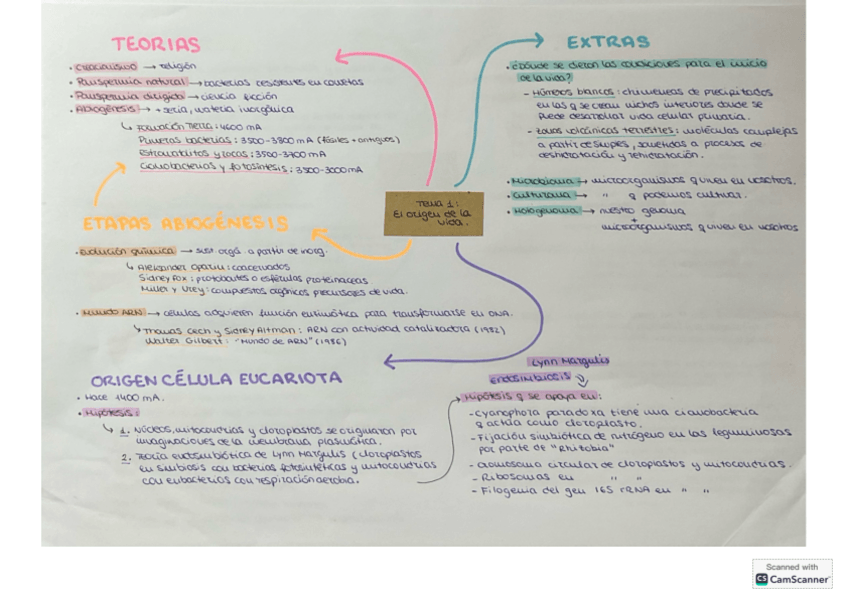 TEORIAS
· Creacionismo → religión
· Panspermia natural → bacterias resistentes en cometas
· Panspermia dirigida → ciencia ficción
· Abiogénesis → + seria, materia inorgánica
↳ Formación Tierra: 4600 mA
Primeras bacterias: 3500-3800 mA (fósiles + antiguos)
Estromatolitos y rocas: 3500-3700 mA
Cianobacterias y fotosíntesis: 3500-3000mA
EXTRAS
· ¿Dónde se dieron las condiciones para el inicio
de la vida?
- Húmeros blancos: chimeneas de precipitados
en las q se crean nichos interiores donde se
puede desarrollar vida celular primaria.
- Zonas volcánicas terrestres: moléculas complejas
a partir de simples, sometidas a procesos de
deshidratación y rehidratación.
· Microbioma → microorganismos q viven en nosotros.
· Culturoma → " q podemos cultivar.
· Hologenoma → nuestro genoma
+
microorganismos q viven en nosotros
TEMA 1:
El origen de la
vida.
ETAPAS ABIOGÉNESIS
· Evolución química → sust. orgá. a partir de inorg.
↳ Aleksander Oparin: coacervados
Sidney Fox: protobiontes o esférulas proteinaceas
Miller y Urey: compuestos orgánicos precursores de vida.
· Mundo ARN → células adquieren función enzimática para transformarse en DNA.
↳ Thomas Cech y Sidney Altman: ARN con actividad catalizadora (1982)
Walter Gilbert: "Mundo de ARN" (1986)
ORIGEN CÉLULA EUCARIOTA
· Hace 1400 mA.
· Hipótesis:
↳ 1. Núcleos, mitocondrias y cloroplastos se originaron por
invaginaciones de la membrana plasmática.
2. Teoría endosimbiótica de Lynn Margulis (cloroplastos
en simbiosis con bacterias fotosintéticas y mitocondrias
con eubacterias con respiración aerobia.
Lynn Margulis
Endosimbiosis
Hipótesis q se apoya en:
- Cyanophora paradoxa tiene una cianobacteria
q actúa como cloroplasto.
- Fijación simbiótica de nitrógeno en las leguminosas
por parte de "Rhizobia"
- Cromosoma circular de cloroplastos y mitocondrias.
- Ribosomas en " "
- Filogenia del gen 16S rRNA en " "
Scanned with
CS CamScanner